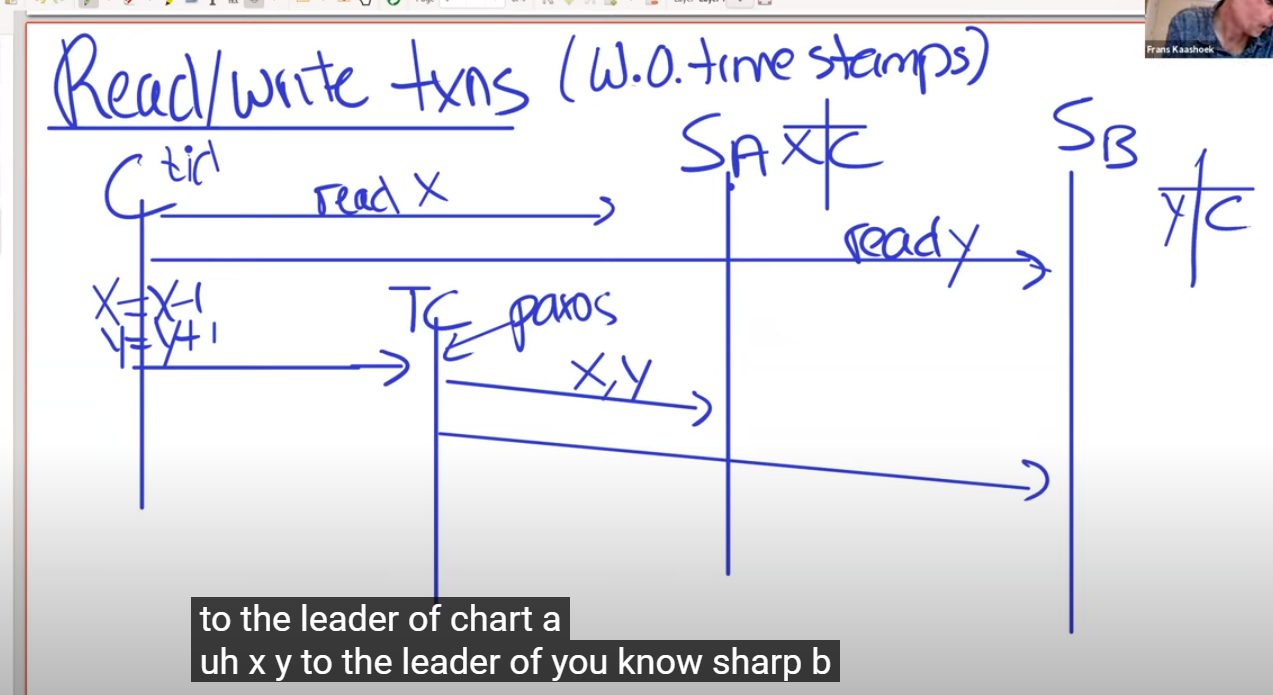 Frans Kaashoek
Read/write txns (W.O. time stamps)
C tid
SA X C
SB
Y C
read X
read y
X=X-1
y=y+1
TC
paxos
X, Y
to the leader of chart a
uh x y to the leader of you know sharp b